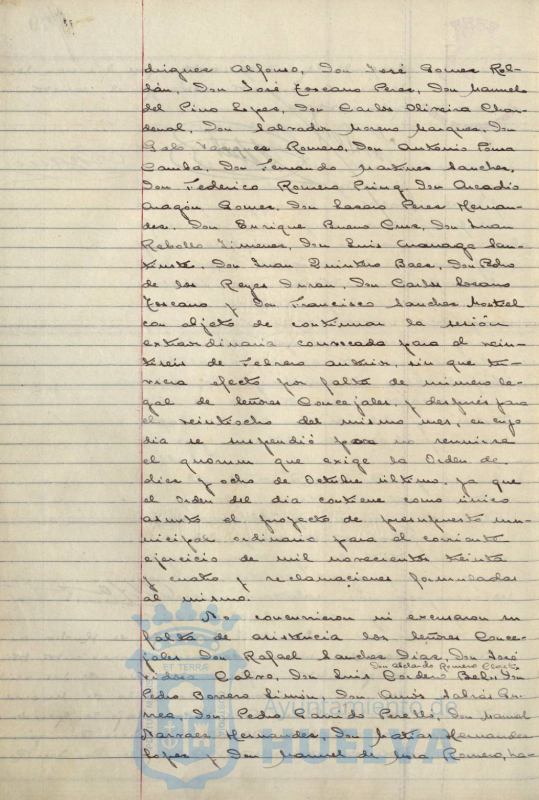 driguez Alfonso, Don José Gomez Rol-
dán, Don José Toscano Perez, Don Manuel
del Pino Lopez, Don Carlos Oliveira Chan-
denal, Don Salvador Moreno Marquez, Don
Galo Vazquez Romero, Don Antonio Ponce
Don Fernando Martinez Sanchez,
Don Federico Romero Don Arcadio
Aragón Gomez, Don Lazaro Perez Hernan-
dez, Don Enrique Bueno Cruz, Don Juan
Rebollo Jimenez, Don Luis
Don Juan Quintero Baez, Don Pedro
de los Reyes Duran, Don Carlos Lozano
Toscano y Don Francisco Sanchez Montiel
con objeto de continuar la sesión
extraordinaria convocada para el vein-
tiseis de Febrero anterior, sin que tu-
viera efecto por falta de número le-
gal de Señores Concejales, y después para
el veintiocho del mismo mes, en cuyo
dia se suspendió para no reunirse
el quorum que exige la Orden de
diez y ocho de Octubre último, ya que
el Orden del dia contiene como único
asunto el proyecto de presupuesto mu-
nicipal ordinario para el corriente
ejercicio de mil novecientos treinta
y cuatro y reclamaciones formuladas
al mismo.
No concurrieron ni excusaron su
falta de asistencia los Señores Conce-
jales Don Rafael Sanchez Diaz, Don José
Don Abelardo Romero
Calvo, Don Luis Cordero Bel, Don
Pedro Borrero Limón, Don Amós Sabrás Gu-
rrea, Don Pedro Garrido Perelló, Don Manuel
Narvaez Hernandez, Don Matías Hernandez
Lopez y Don Manuel de Mora Romero, ha-
Ayuntamiento de
HUELVA